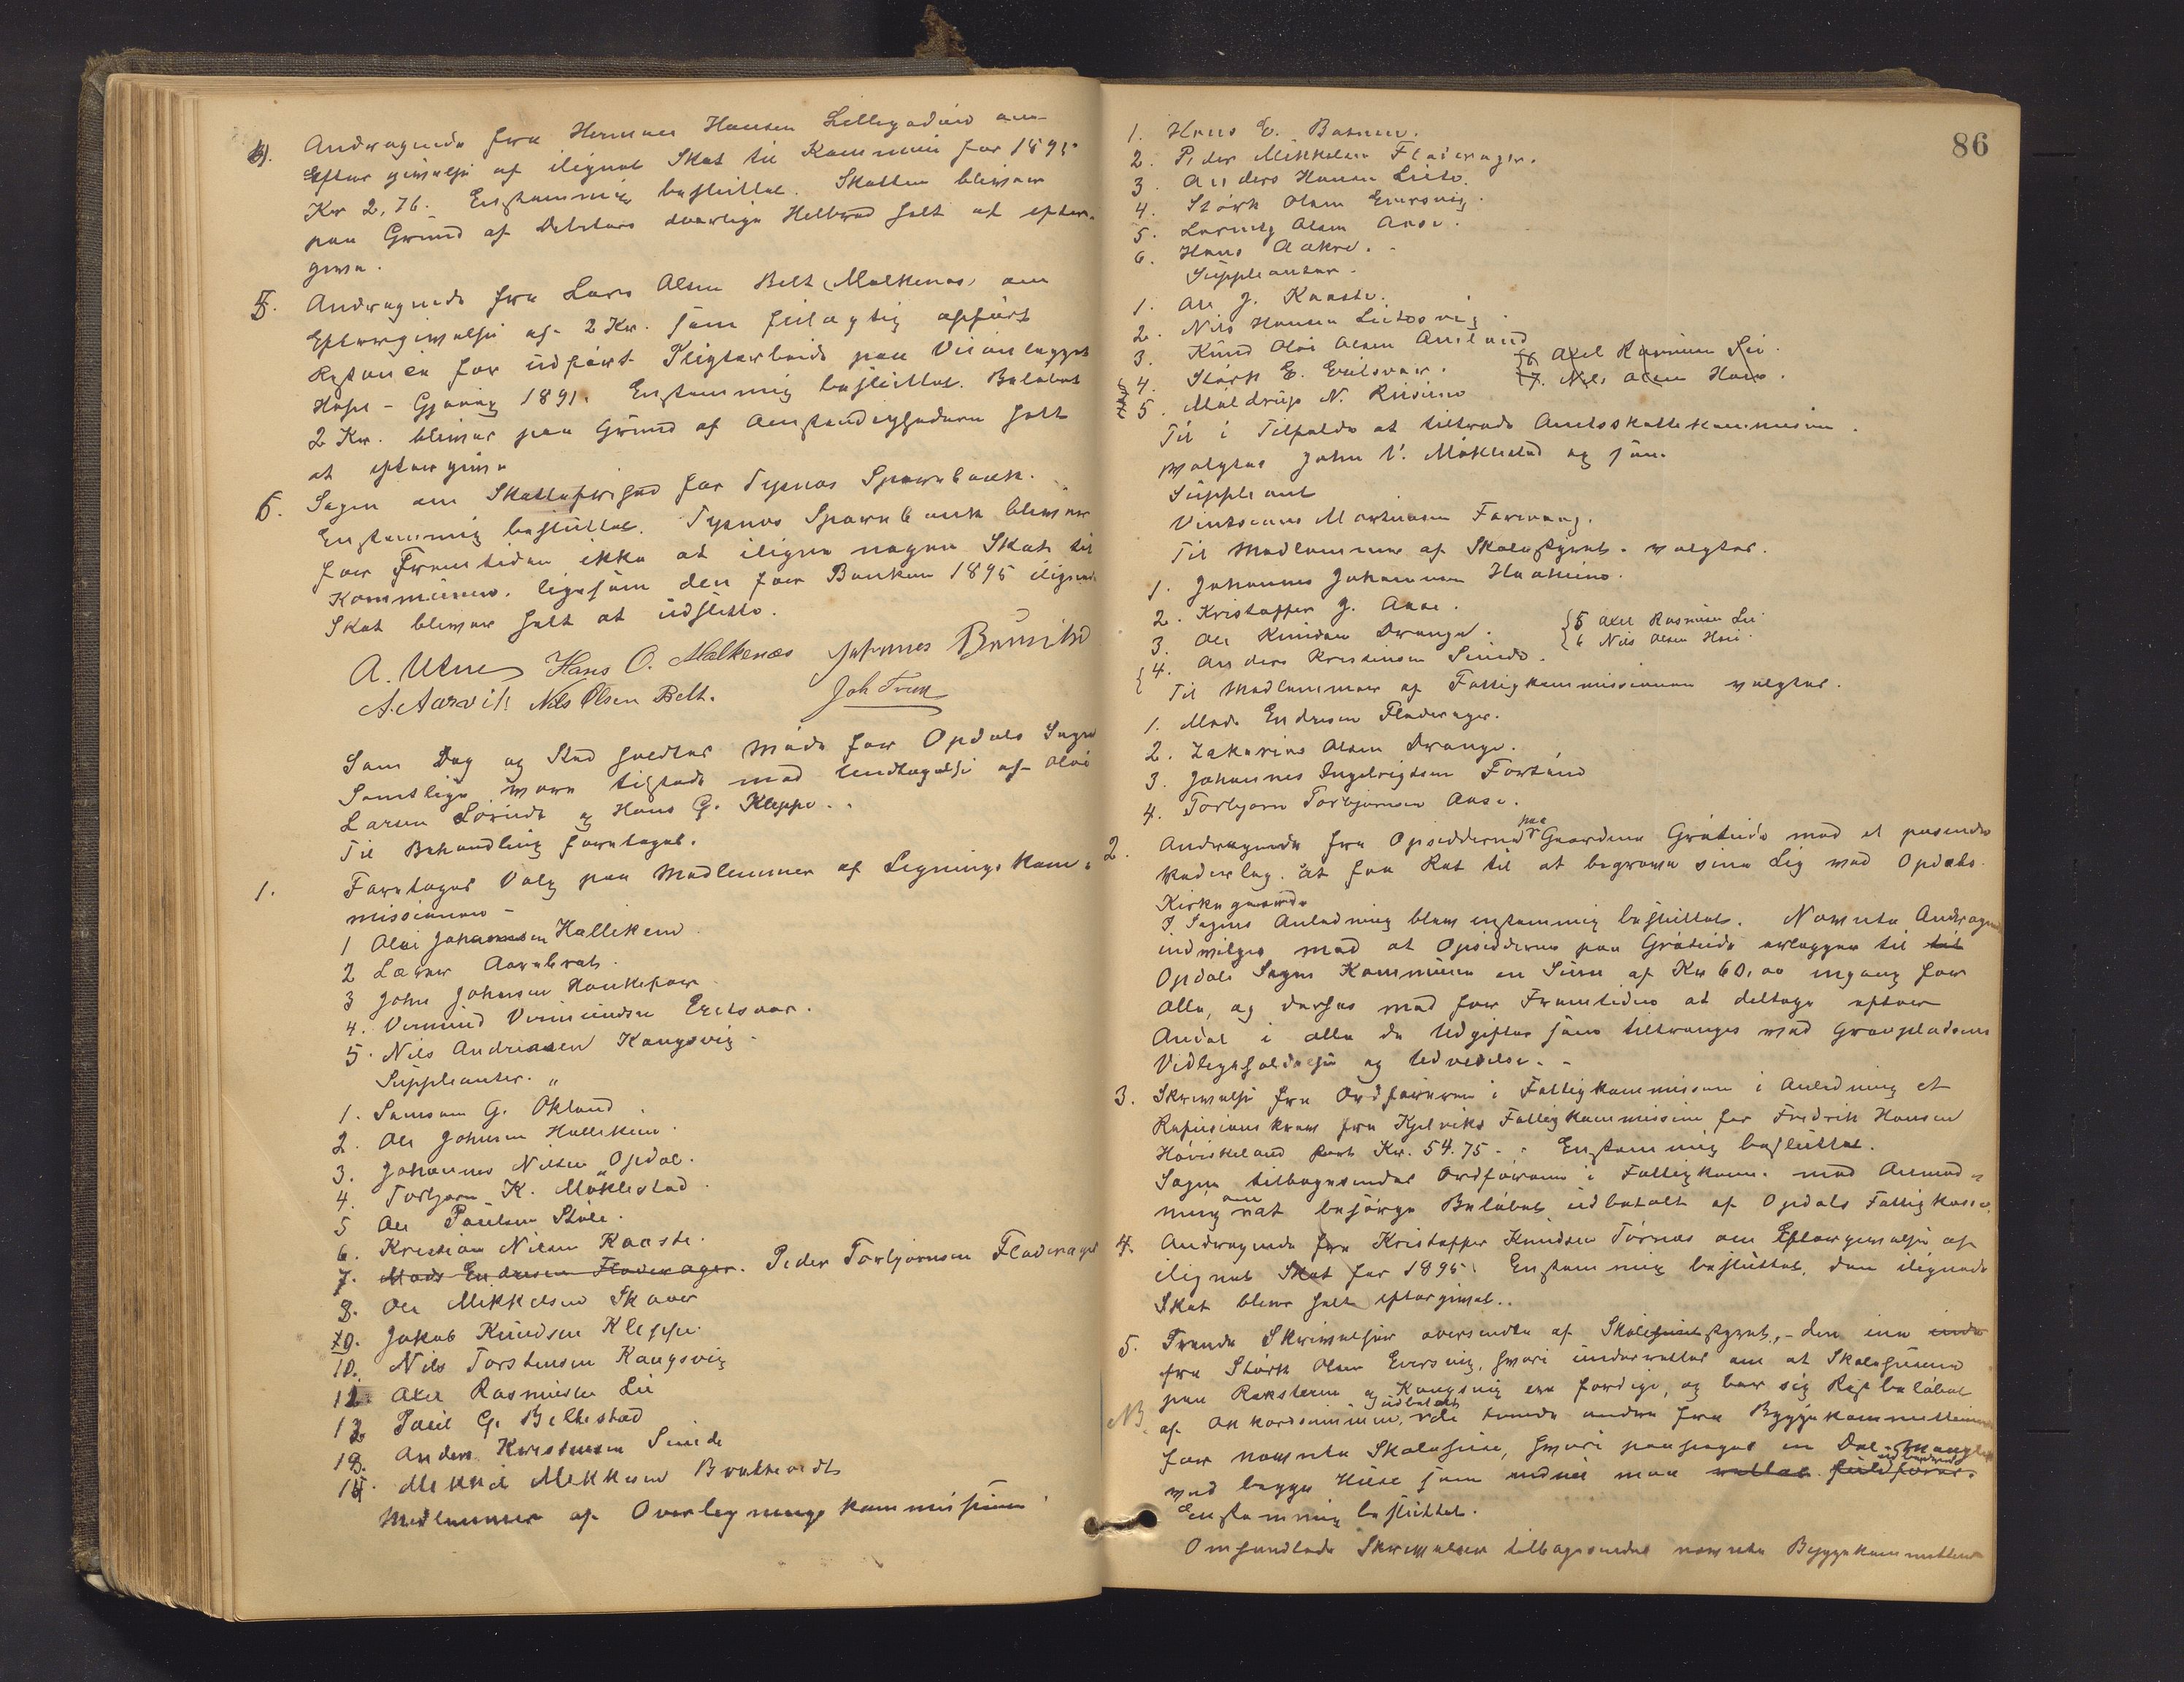 4). Andragende fra Herman Hansen om
Eftergivelse af ilignet Skat til Kommunen for 1895
Kr 2,76. Enstemmig besluttet. Skatten bliver
paa Grund af Debitors daarlige Helbred helt at efter-
give.
5. Andragende fra Lars Olsen Belt (Malkenæs) om
Eftergivelse af 2 Kr. som feilagtig opført
Restance for udført Pligtarbeide paa Veianlægget
1891. Enstemmig besluttet. Beløbet
2 Kr. bliver paa Grund af Omstendighederne helt
at eftergive
6. Sagen om Skattefrihed for Tysnes Sparebank.
Enstemmig besluttet. Tysnes Sparebank bliver
for Fremtiden ikke at iligne nogen Skat til
Kommunen, ligesom den for Banken 1895 ilignede
Skat bliver helt at udslette.
A. Utne Hans O. Malkenæs Johannes
A. Aarvik Nils Olsen Belt. Joh
Sam Dag og Sted holdtes Møde for Opdals Sogn
Samtlige vare tilstede med Undtagelse af Oloi
Larsen og Hans G. Kleppe.
Til Behandling foretoges.
1. Foretoges Valg paa Medlemmer af Ligningskom-
missionen -
1 Oloi Johannesen Hallekem
2 Aarebrot.
3 John Johnsen Haukefær
4. Vermund Vermundsen Ereisvær.
5. Nils Andreasen Kongsvig
Suppleanter. "
1. Samson G. Økland
2. Ole Johnsen Hallekem.
3. Johannes Nilsen Opdal.
4. Torbjørn K. Møklestad
5 Ole Poulsen Støle.
6. Kristian Nilsen Kaaste.
7. Mads Endresen Fladerager. Peder Torbjørnsen Fladerager
8. Ole Mikkelsen Skaar
9. Jakob Knudsen Kleppe.
10. Nils Torstensen Kongsvig
11 Axel Rasmusen Lie
12 Poul G. Bellestad
13. Anders Kristensen Sunde
14. Mikkel Mikkelsen
Medlemmer af Overligningskommissionen
86
1. Hans E.
2. Peder Mikkelsen Fladerager.
3. Anders Hansen
4. Størk Olsen Eversvig.
5. Olsen Aase.
6. Hans Aakre.
Suppleanter.
1. Ole J. Kaaste.
2. Nils Hansen
3. Knud Oloi Olsen
6. Axel Rasmusen Lie
4. Størk E.
7. Nils Olsen
5. Meldrup N.
Til i Tilfælde at tiltræde Amtsskattekommission.
valgtes John V. Møklestad og som
Suppleant
Martinsen
Til Medlemmer af Skolestyret. valgtes.
1. Johannes Johannesen
2. Kristoffer J. Aase.
3. Ole Knudsen Drange.
5 Axel Rasmusen Lie
4. Anders Kristensen Sunde.
6 Nils Olsen
Til Medlemmer af Fattigkommissionen valgtes.
1. Mads Endresen Fladerager.
2. Zakarias Olsen Drange.
3. Johannes Ingebrigtsen
4. Torbjørn Torbjørnsen Aase.
2. Andragende fra Opsidderne paa Gaardene med et passende
Vederlag. at faa Ret til at begrave sine Lig ved Opdals
Kirkegaard
I Sagens Anledning blev enstemmig besluttet. Nævnte Andragende
indvilges mod at Opsidderne paa erlægger til til
Opdals Sogns Kommune en Sum af Kr 60,00 engang for
alle, og derhos mod for Fremtiden at deltage efter
Andel i alle de Udgifter som tiltrænges ved Gravpladsens
Vedligeholdelse og Udvidelse. -
3. Skrivelse fra Ordføreren i Fattigkommissionen i Anledning et
Refusionskrav fra Kjelviks Fattigkommission for Fredrik Hansen
Kr. 54.75 - Enstemmig besluttet.
Sagen tilbagesendes Ordføreren i Fattigkom. med Anmod-
ning om at besørge Beløbet udbetalt af Opdals Fattigkasse.
4. Andragende fra Kristoffer Knudsen om Eftergivelse af
ilignet Skat for 1895. Enstemmig besluttet. den ilignede
Skat blev helt eftergivet..
5. Trende Skrivelser oversendte af Skolestyret, - den ene
fra Størk Olsen Eversvig, hvori underrettes om at Skolehusene
paa Reksteren og Kongsvig ere færdige, og ber sig Restbeløbet
NB af Akkordsummen udbetalt, de tvende andre fra Byggekommitteen
for nævnte Skolehuse, hvori paapeges en Del Mangler
ved begge Huse som endnu maa
Enstemmig besluttet.
Omhandlede Skrivelser tilbagesendes nævnte Byggekommitteer